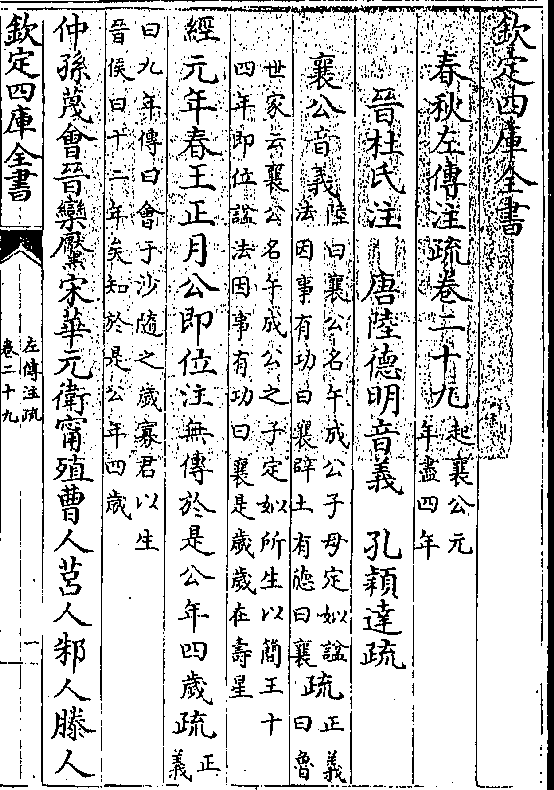 欽定四庫全書
春秋左傳注疏卷二十九
起襄公元
年盡四年
晉杜氏注　唐陸德明音義　孔穎達疏
襄公音義
陸曰襄公名午成公子母定姒諡
法因事有功曰襄辟土有德曰襄
疏
正義
曰魯
世家云襄公名午成公之子定姒所生以簡王十
四年即位諡法因事有功曰襄是歲歲在壽星
經元年春王正月公即位注無傳於是公年四歲疏
正
義
曰九年傳曰會于沙隨之歲寡君以生
晉侯曰十二年矣知於是公年四歲
仲孫蔑會晉欒黶宋華元衛甯殖曹人莒人邾人滕人
欽定四庫全書
左傳注疏
卷二十九
一